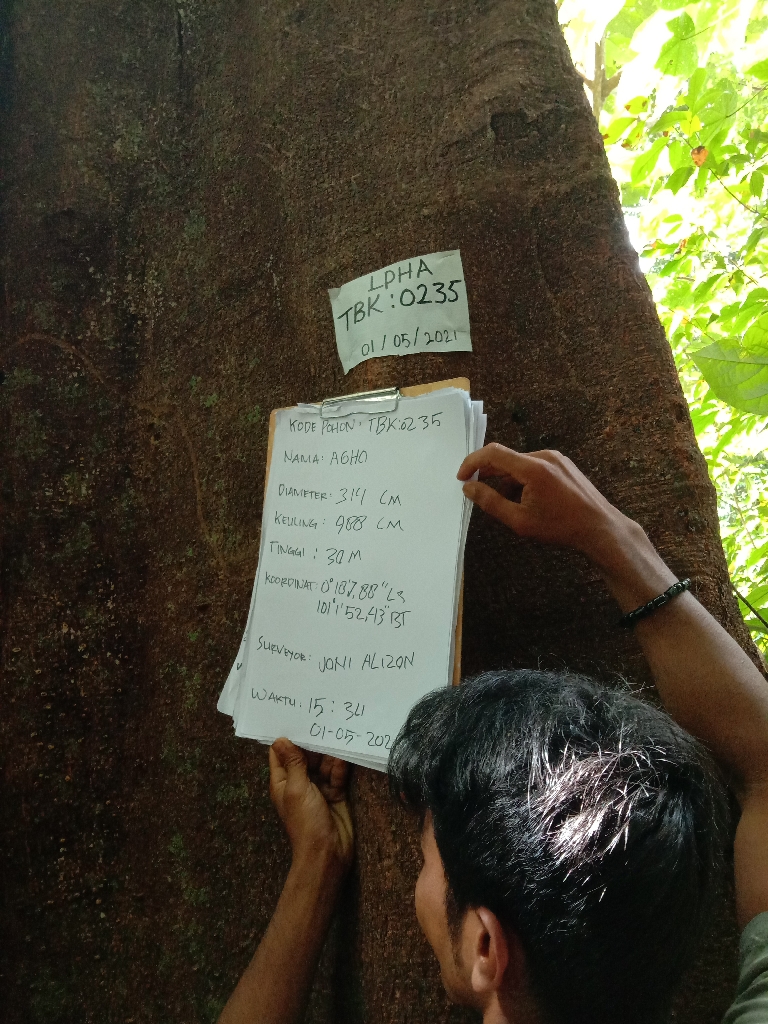 LPHA
TBK : 0235
01/05/2021
KODE POHON : TBK:0235
NAMA : AGHO
DIAMETER : 314 CM
KELILING : 988 CM
TINGGI : 30 M
KOORDINAT : 0°18'7,88" LS
101°1'52,43" BT
SURVEYOR : JONI ALIZON
WAKTU : 15 : 34
01-05-202